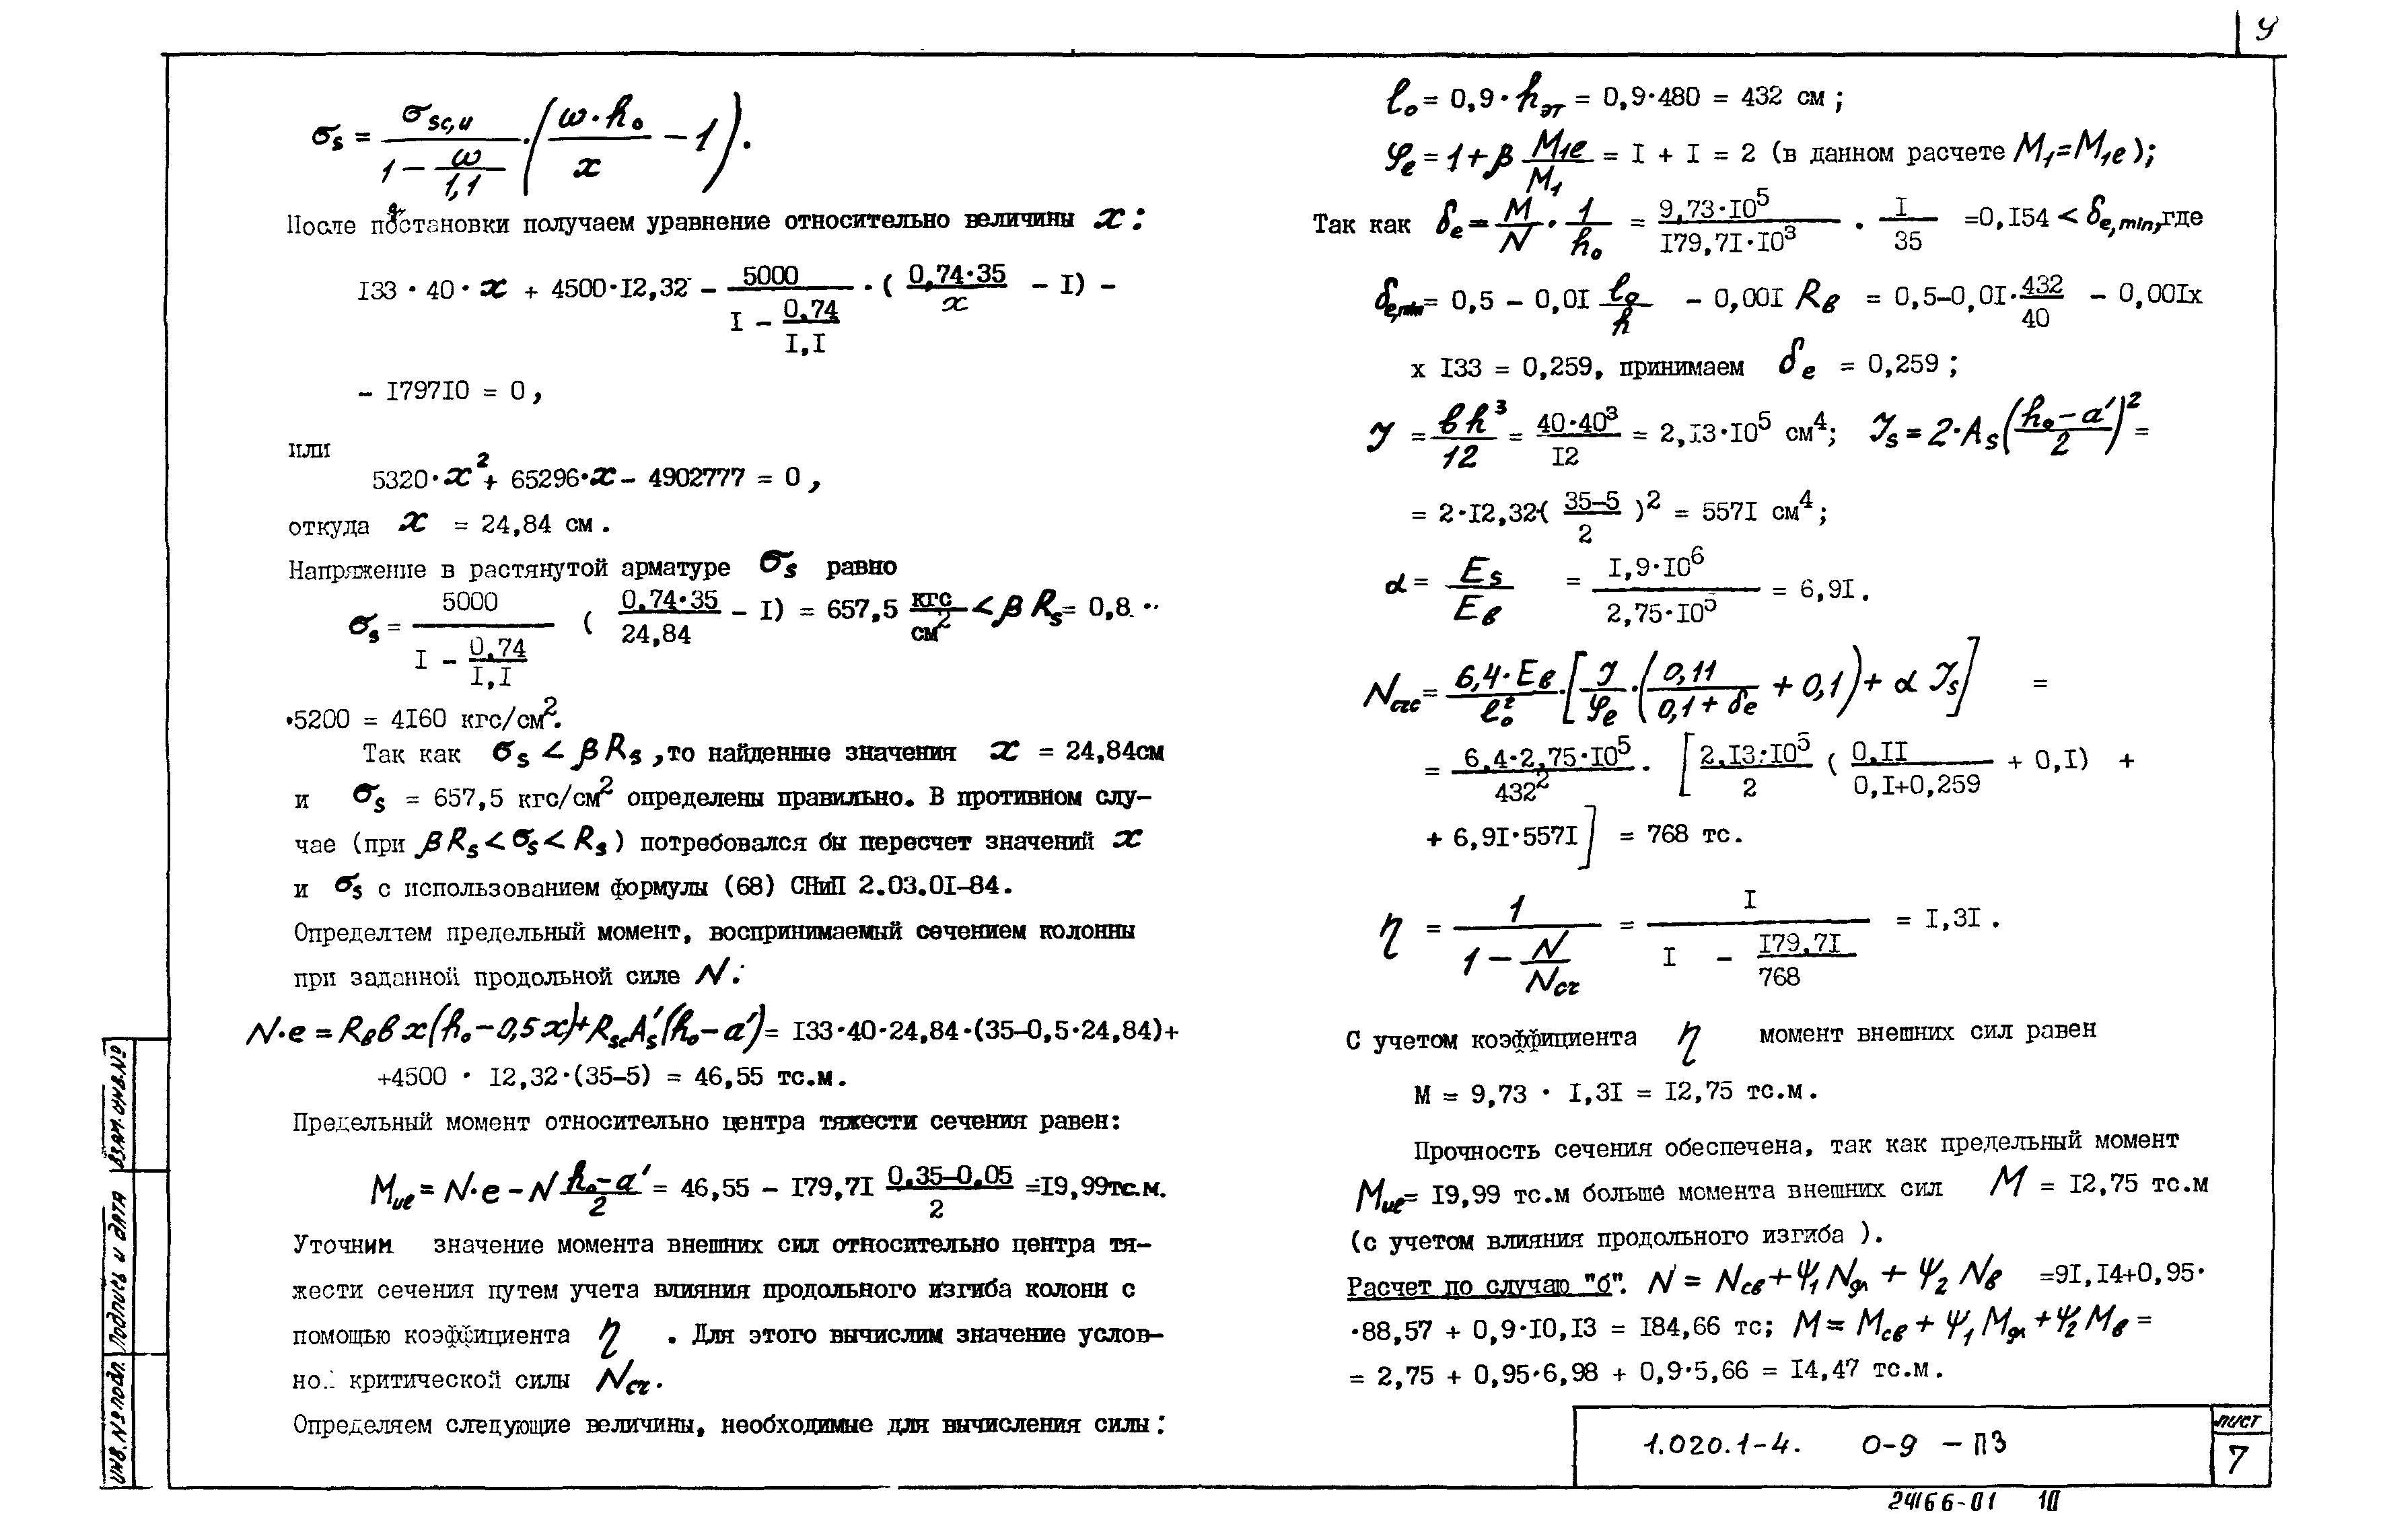 У
σs = σsc,u / (1 − ω/1,1) · (ω·h₀/x − 1).
После подстановки получаем уравнение относительно величины x:
133 · 40 · x + 4500·12,32 − 5000 / (1 − 0,74/1,1) · (0,74·35/x − 1) −
− 179710 = 0,
или
5320·x² + 65296·x − 4902777 = 0,
откуда x = 24,84 см.
Напряжение в растянутой арматуре σs равно
σs = 5000 / (1 − 0,74/1,1) (0,74·35/24,84 − 1) = 657,5 кгс/см² < β Rs = 0,8 ·
·5200 = 4160 кгс/см².
Так как σs < β Rs, то найденные значения x = 24,84см
и σs = 657,5 кгс/см² определены правильно. В противном слу-
чае (при β Rs < σs < Rs) потребовался бы пересчет значений x
и σs с использованием формулы (68) СНиП 2.03.01-84.
Определяем предельный момент, воспринимаемый сечением колонны
при заданной продольной силе N:
N·e = Rв в x(h₀ − 0,5x) + Rsc A's(h₀ − a') = 133·40·24,84·(35−0,5·24,84)+
+4500 · 12,32·(35−5) = 46,55 тс.м.
Предельный момент относительно центра тяжести сечения равен:
Mue = N·e − N (h₀ − a')/2 = 46,55 − 179,71 (0,35−0,05)/2 = 19,99тс.м.
Уточним значение момента внешних сил относительно центра тя-
жести сечения путем учета влияния продольного изгиба колонн с
помощью коэффициента η . Для этого вычислим значение услов-
ной критической силы Ncr.
Определяем следующие величины, необходимые для вычисления силы:
l₀ = 0,9·hэт = 0,9·480 = 432 см ;
φe = 1 + β M1e/M1 = 1 + 1 = 2 (в данном расчете M1 = M1e);
Так как δe = M/N · 1/h₀ = 9,73·10⁵ / 179,71·10³ · 1/35 = 0,154 < δe,min, где
δe,min = 0,5 − 0,01 l₀/h − 0,001 Rв = 0,5−0,01·432/40 − 0,001х
х 133 = 0,259, принимаем δe = 0,259 ;
J = вh³/12 = 40·40³/12 = 2,13·10⁵ см⁴; Js = 2·As((h₀ − a')/2)² =
= 2·12,32·( (35−5)/2 )² = 5571 см⁴;
α = Es/Eв = 1,9·10⁶ / 2,75·10⁵ = 6,91.
Ncrc = 6,4·Eв/l₀² · [J/φe · (0,11/(0,1 + δe) + 0,1) + α Js] =
= 6,4·2,75·10⁵/432² · [2,13·10⁵/2 (0,11/(0,1+0,259) + 0,1) +
+ 6,91·5571] = 768 тс.
η = 1 / (1 − N/Ncr) = 1 / (1 − 179,71/768) = 1,31.
С учетом коэффициента η момент внешних сил равен
М = 9,73 · 1,31 = 12,75 тс.м.
Прочность сечения обеспечена, так как предельный момент
Mue = 19,99 тс.м больше момента внешних сил M = 12,75 тс.м
(с учетом влияния продольного изгиба ).
Расчет по случаю "б". N = Nсв + ψ1 Nдл + ψ2 Nв =91,14+0,95·
·88,57 + 0,9·10,13 = 184,66 тс; M = Mсв + ψ1 Mдл + ψ2 Mв =
= 2,75 + 0,95·6,98 + 0,9·5,66 = 14,47 тс.м.
1.020.1-4. 0-9 - ПЗ
лист
7
24166-01 10
Взам. инв.№
Подпись и дата
Инв. № подл.